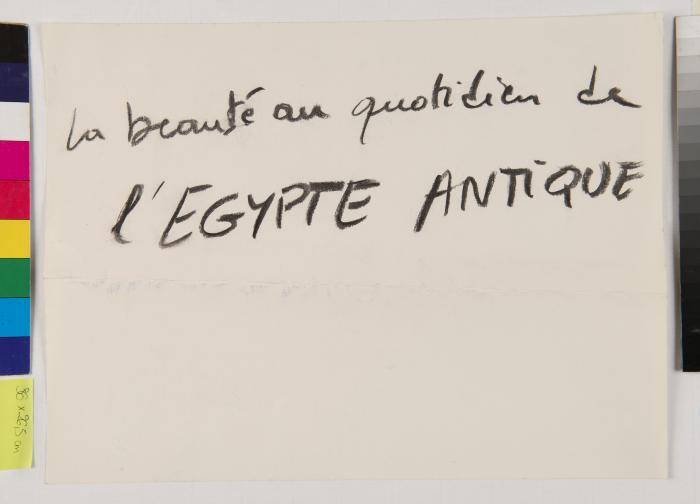 La beauté au quotidien de
l'EGYPTE ANTIQUE